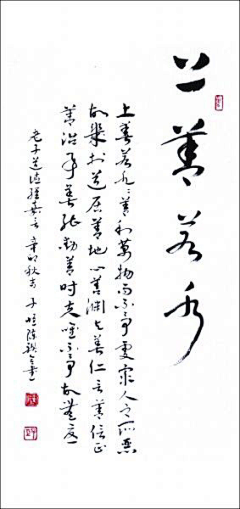 上善若水
上善若水〻善利萬物而不爭處衆人之所惡
故幾於道居善地心善淵与善仁言善信正
善治事善能動善時夫唯不爭故無尤
老子道德經嘉言 辛卯秋 子 陳 書